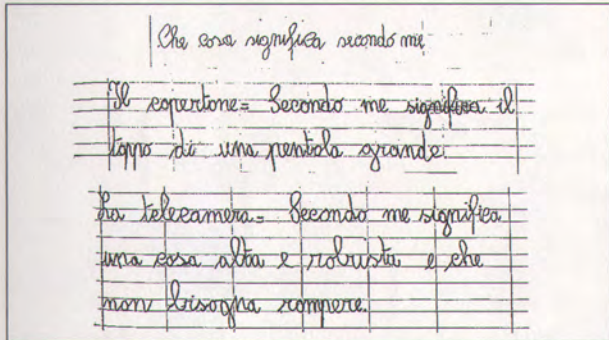 Che cosa significa secondo me
Il copertone= Secondo me significa il
tappo di una pentola grande.
La telecamera= Secondo me significa
una cosa alta e robusta e che
non bisogna rompere.